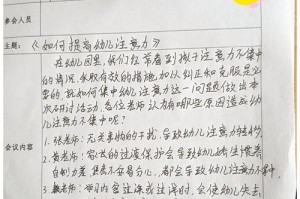 参会人员
主题：《如何提高幼儿注意力》
在幼儿园里，我们经常看到孩子注意力不集中
的情况，采取有效的措施加以纠正和克服是必
要的，就如何集中幼儿注意力这一问题做出本
次研讨活动，各位老师认为有哪些原因造成幼
儿注意力不集中呢？
会议内容
1. 张老师：无关事物的干扰，导致幼儿注意力转移
老师：家长的过渡保护会导致幼儿
自制力差，做事不容易分心，都会导致幼儿注意力不集中
3. 老师：内容过深或过浅时，会使幼儿失去